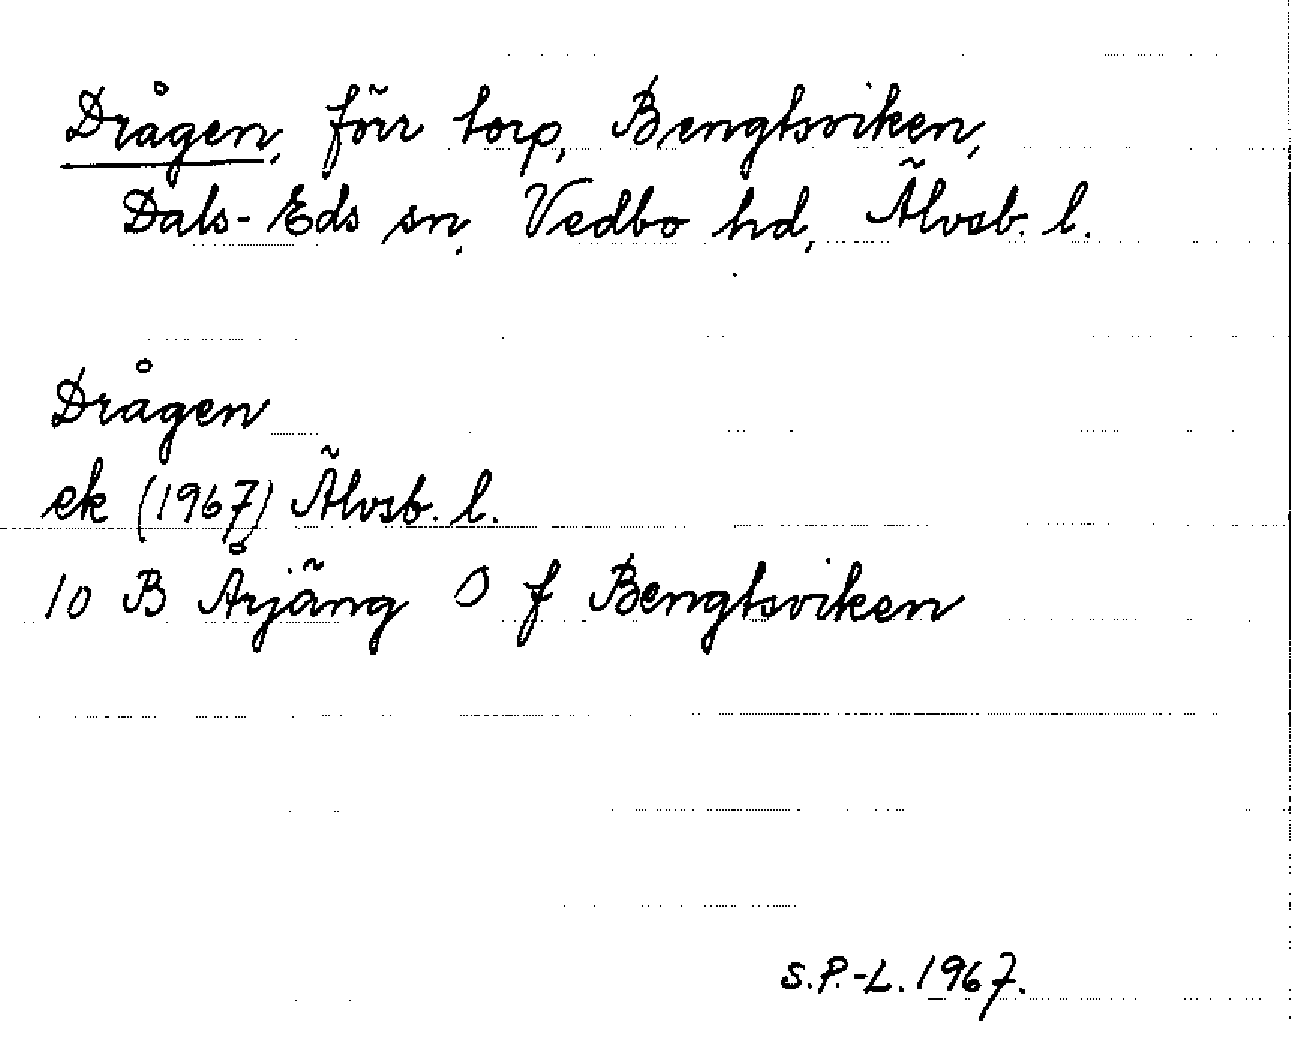 Drågen, förr torp, Bengtsviken,
Dals-Eds sn, Vedbo hd, Älvsb. l.
Drågen
ek (1967) Älvsb. l.
10 B Årjäng O f Bengtsviken
S.P.-L. 1967.